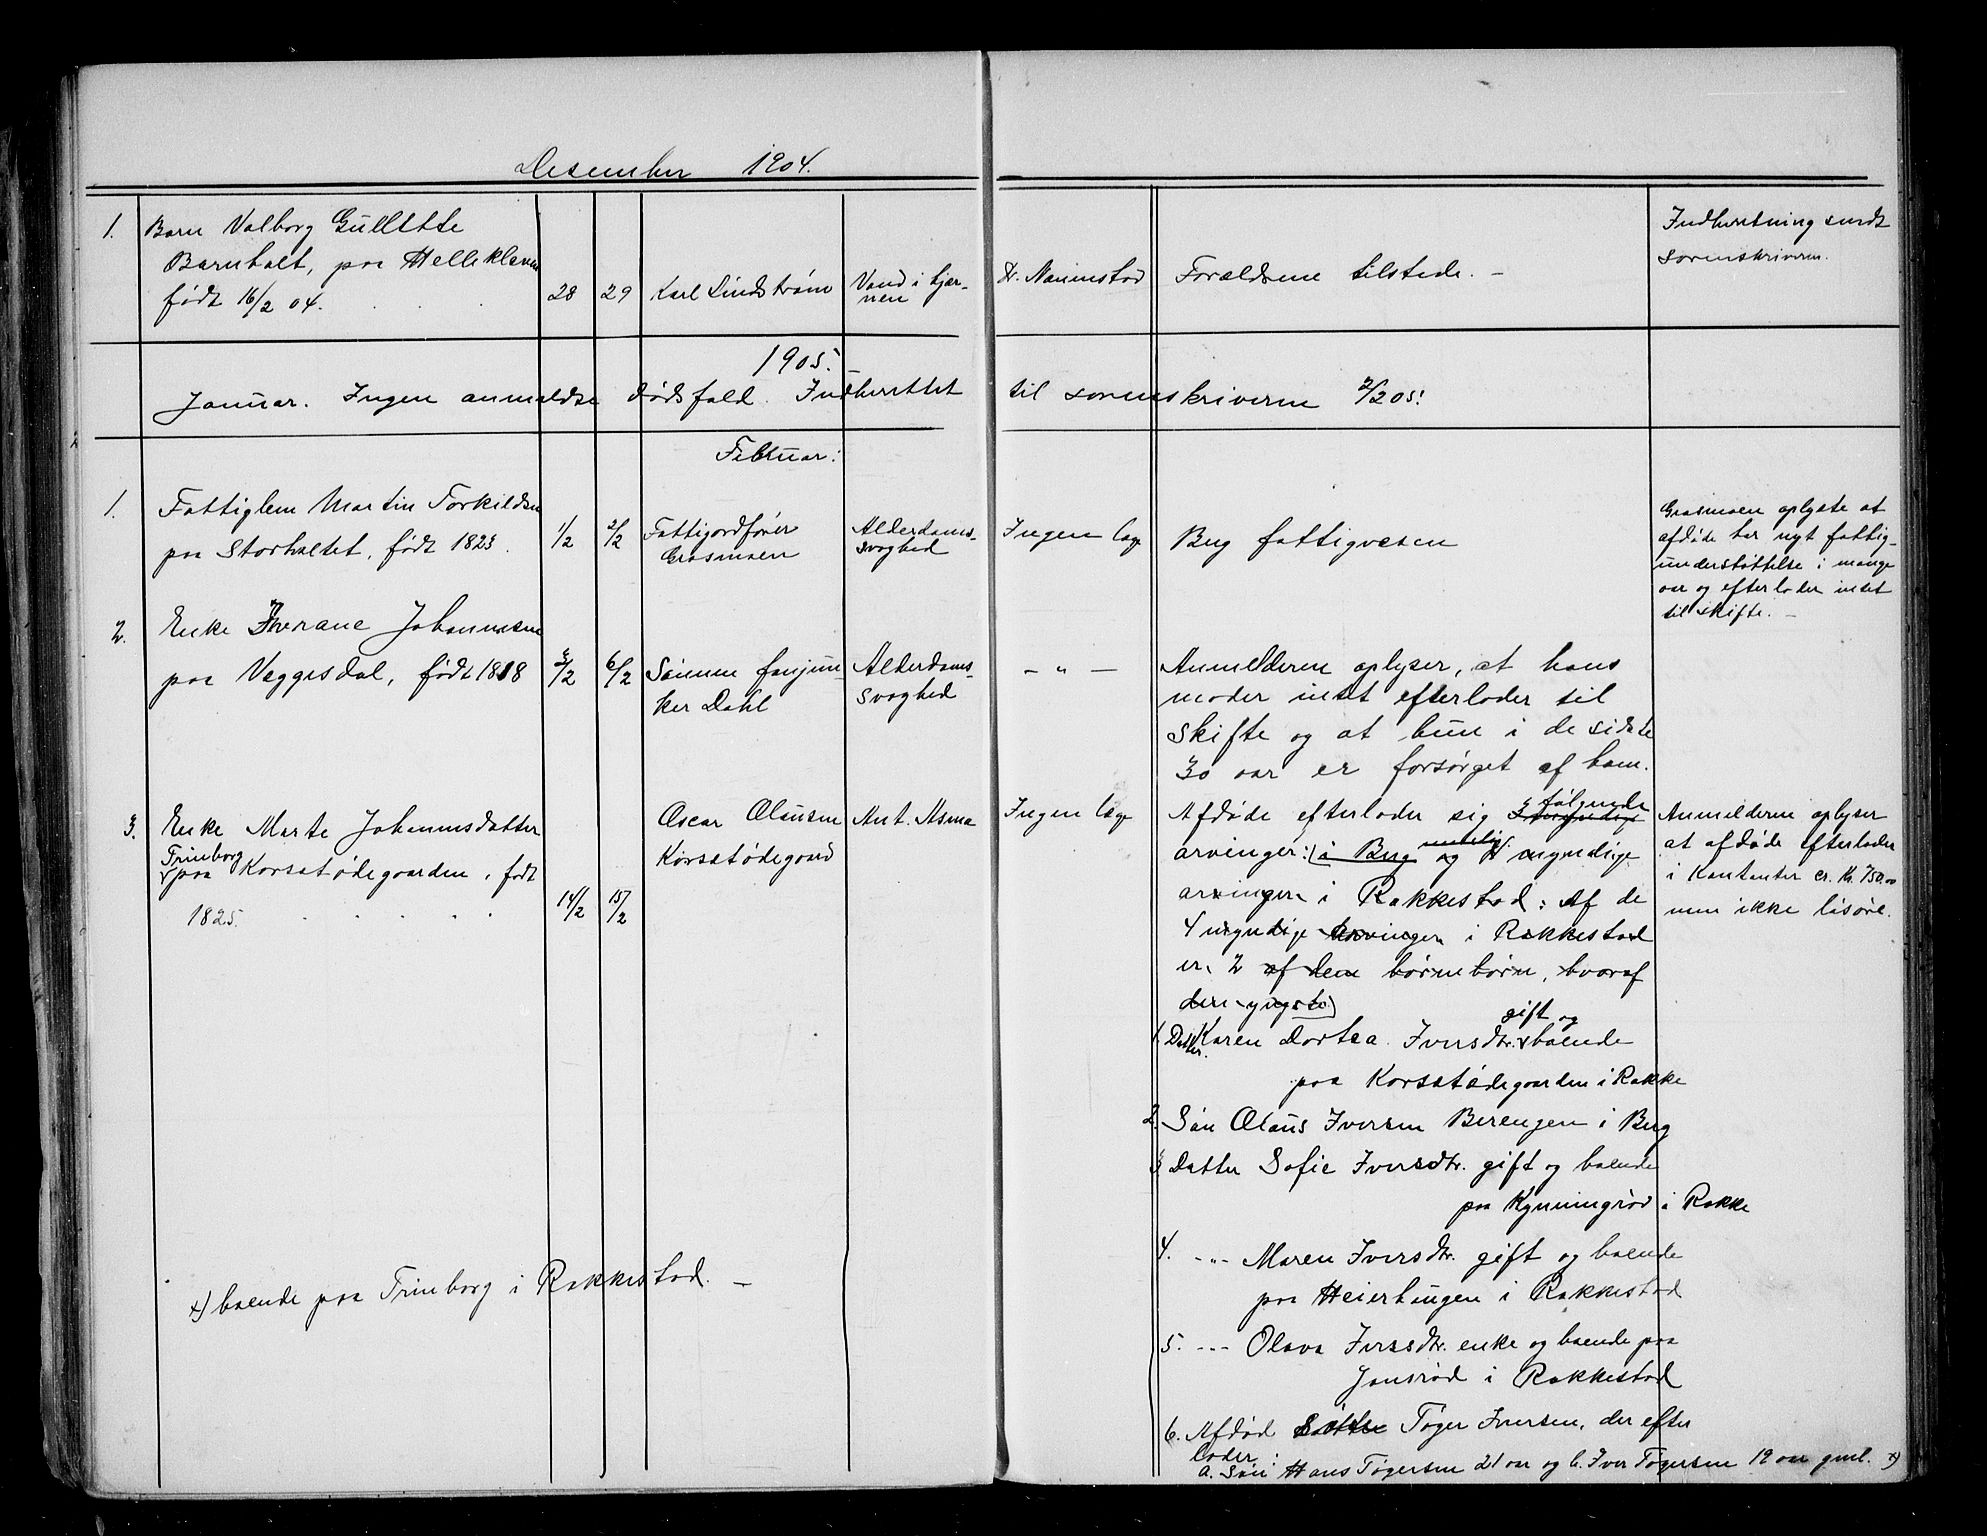 Desember 1904.
1. Barn Valborg Gullette
Barnholt, paa Hellekleven
født 16/2 04.
28
29
Karl Lindstrøm
Vand i hjer-
nen
Dr. Nannestad
Forældrene tilstede. -
Indberetning sendt
sorenskriveren.
1905.
Januar. Ingen anmeldte dødsfald. Indberettet til sorenskriveren 2/2 05.
Februar:
1. Fattiglem Martin Torkildsen
paa Storholtet, født 1823.
1/2
2/2
Fattigordfører
Grasmoen
Alderdoms-
svaghed
Ingen læge
Berg fattigvesen
Grasmoen oplyste at
afdøde har nyt fattig-
understøttelse i mange
aar og efterlader intet
til skifte. -
2. Enke Johannesen
paa Veggesdal, født 1818
3/2
6/2
Sønnen fanjun
ker Dahl
Alderdoms-
svaghed
- " -
Anmelderen oplyser, at hans
moder intet efterlader til
skifte og at hun i de sidste
30 aar er forsørget af ham.
3. Enke Marte Johannesdatter
Trinborg
x paa Korsstødegaarden, født
1825.
14/2
15/2
Oscar Olausen
Korsstødegaard
Ant. Asma
Ingen læge
Afdøde efterlader sig følgende
arvinger: (i Berg og 4 myndige
arvinger i Rakkestad: Af de
4 myndige arvinger i Rakkestad
er 2 af dem børnebørn, hvoraf
den yngste)
1. Datter. Karen Dortea Iversdtr. gift og boende
paa Korsstødegaarden i Rakke
2. Søn Olaus Iversen Berengen i Berg
3. Datter Sofie Iversdtr. gift og boende
paa Kynningrød i Rakke
4. -"- Maren Iversdtr. gift og boende
paa Heierhaugen i Rakkestad
5. -"- Olava Iversdtr. enke og boende paa
Jonsrød i Rakkestad
6. Afdød Tøger Iversen, der efter
lader:
a. Søn Hans Tøgersen 21 aar og b. Iver Tøgersen 19 aar gml. x)
Anmelderen oplyser
at afdøde efterlader
i Kontanter cr. Kr. 750.00
men ikke løsøre.
x) boende paa Trinborg i Rakkestad. -